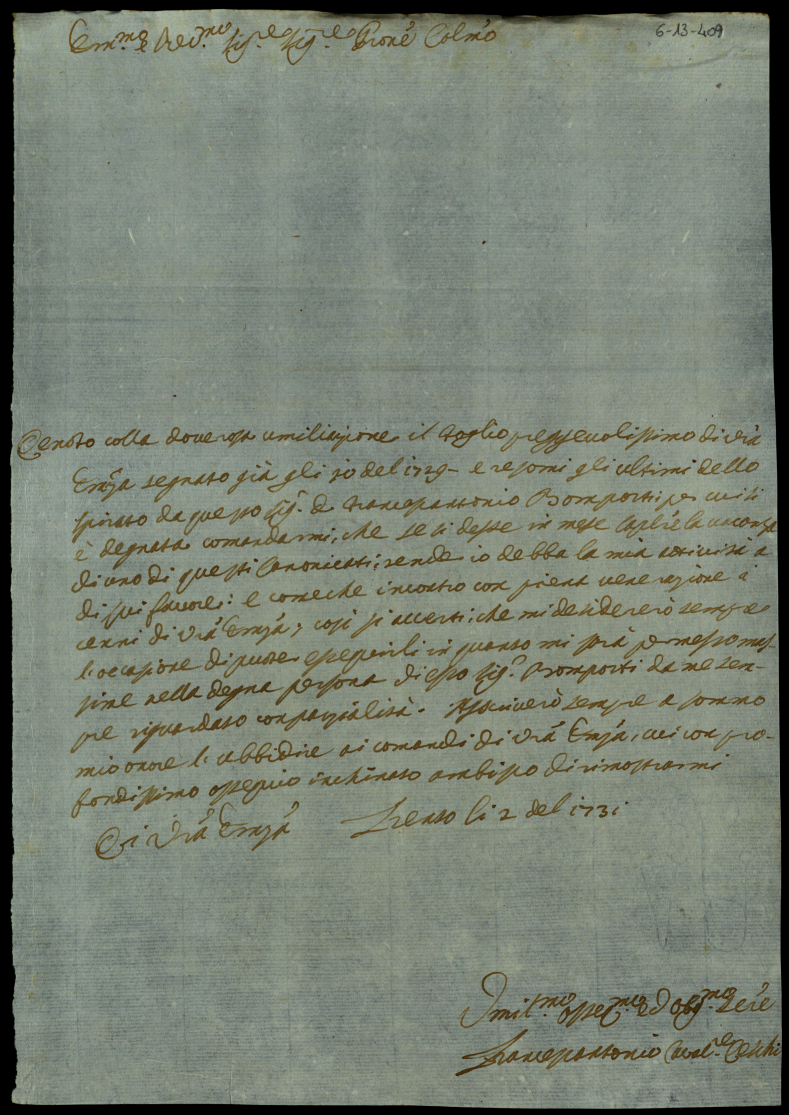 Em.mo e Rev.mo Sig.re Sig.re e Prone Colmo
6-13-409
Venero colla doverosa umiliazione il Foglio pregevolissimo di Vrã
Emza segnato già gli 30 del 1729 e resomi gli ultimi dello
spirato da questo Sig.r D. Francescantonio Bomporti, per cui si
è degnata comandarmi, che se si desse in mese la vacanza
di uno di questi Canonicati, rendere io debba la mia attività a
di sui favore: e comeche incontro con piena venerazione i
cenni di Vrã Emza, così si accerti, che mi desidererò sempre
l'occasione di puoter eseguirli in quanto mi sarà permesso mas-
sime nella degna persona di esso Sig.r Bomporti da me sem-
pre riguardato con parzialità. Ascriverò sempre a sommo
mio onore l'ubbidire ai comandi di Vrã Emza, cui con pro-
fondissimo ossequio inchinato ambisco di rimostrarmi
Di Vrã Emza Trento li 2 del 1731
Umil.mo osseq.mo ed obbg.mo Serre
Francescantonio Ceschi